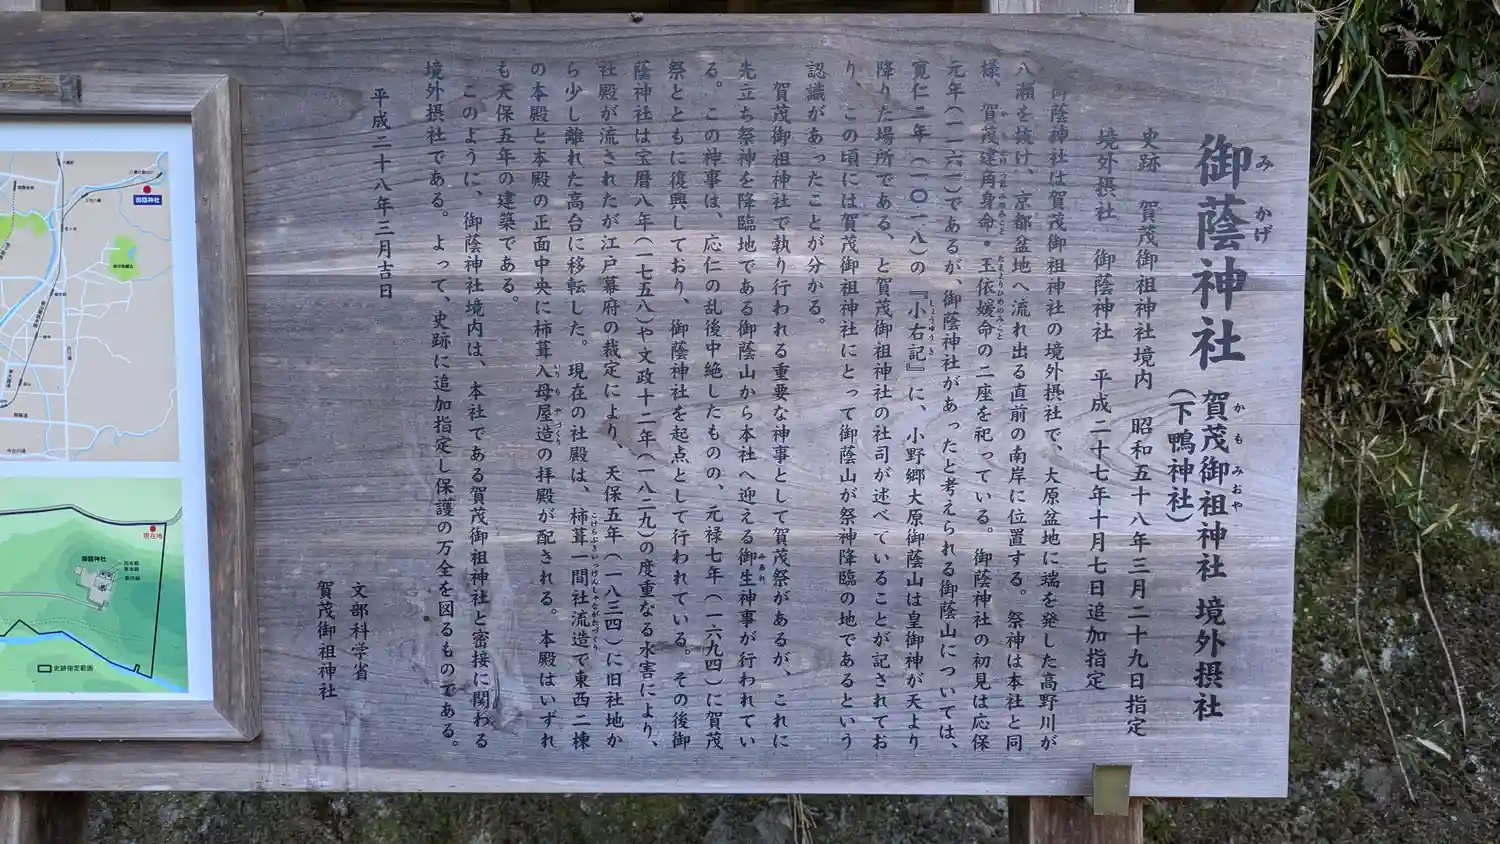 御蔭神社 賀茂御祖神社 境外摂社
みかげ かもみおや
(下鴨神社)
史跡 賀茂御祖神社境内 昭和五十八年三月二十九日指定
境外摂社 御蔭神社 平成二十七年十月七日追加指定
御蔭神社は賀茂御祖神社の境外摂社で、大原盆地に端を発した高野川が
八瀬を抜け、京都盆地へ流れ出る直前の南岸に位置する。祭神は本社と同
様、賀茂建角身命・玉依媛命の二座を祀っている。御蔭神社の初見は応保
かもたけつぬみのみこと たまよりひめのみこと
元年(一一六一)であるが、御蔭神社があったと考えられる御蔭山については、
寛仁二年(一〇一八)の『小右記』に、小野郷大原御蔭山は皇御神が天より
しょうゆうき
降りた場所である、と賀茂御祖神社の社司が述べていることが記されてお
り、この頃には賀茂御祖神社にとって御蔭山が祭神降臨の地であるという
認識があったことが分かる。
賀茂御祖神社で執り行われる重要な神事として賀茂祭があるが、これに
先立ち祭神を降臨地である御蔭山から本社へ迎える御生神事が行われてい
みあれ
る。この神事は、応仁の乱後中絶したものの、元禄七年(一六九四)に賀茂
祭とともに復興しており、御蔭神社を起点として行われている。その後御
蔭神社は宝暦八年(一七五八)や文政十二年(一八二九)の度重なる水害により、
社殿が流されたが江戸幕府の裁定により、天保五年(一八三四)に旧社地か
ら少し離れた高台に移転した。現在の社殿は、柿葺一間社流造で東西二棟
こけらぶきいっけんしゃながれづくり
の本殿と本殿の正面中央に柿葺入母屋造の拝殿が配される。本殿はいずれ
いりもやづくり
も天保五年の建築である。
このように、御蔭神社境内は、本社である賀茂御祖神社と密接に関わる
境外摂社である。よって、史跡に追加指定し保護の万全を図るものである。
平成二十八年三月吉日
文部科学省
賀茂御祖神社
御蔭神社
現在地
御蔭神社
史跡指定範囲